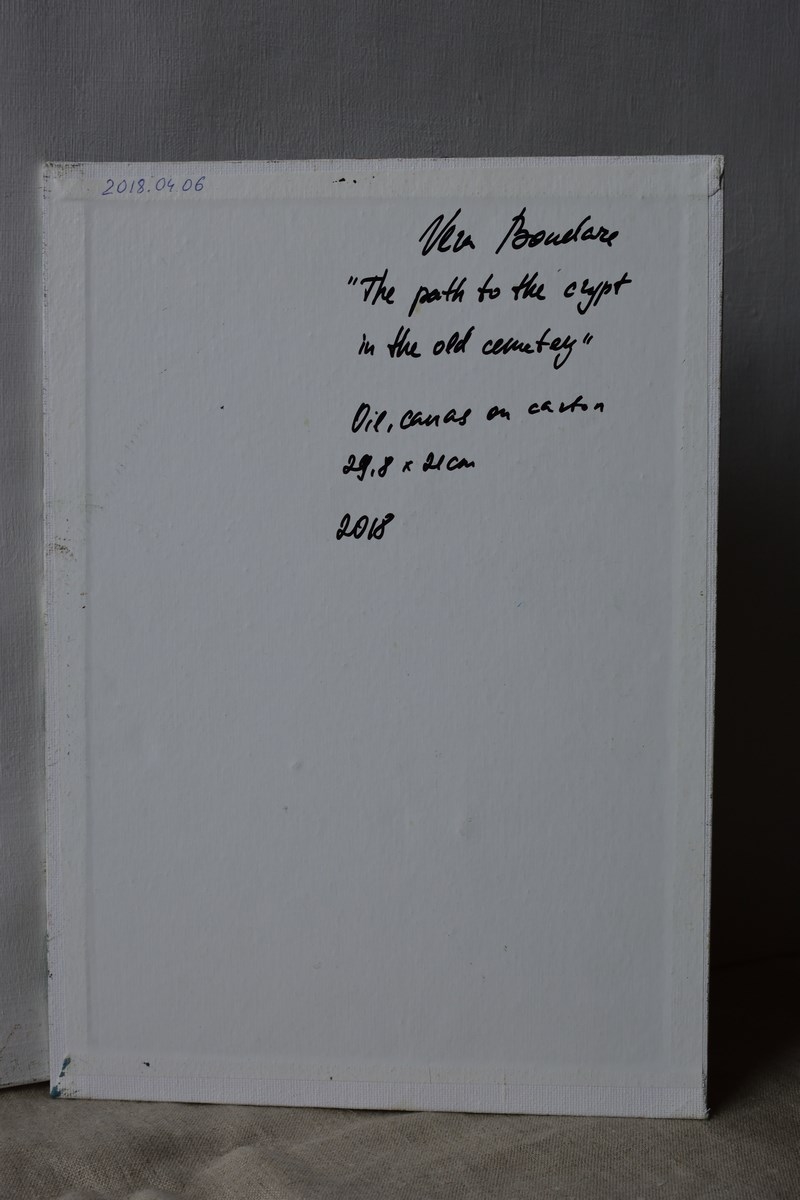 2018.04.06
Vera Bondare
"The path to the crypt
in the old cemetey"
Oil, canas on carton
29,8 x 21cm
2018